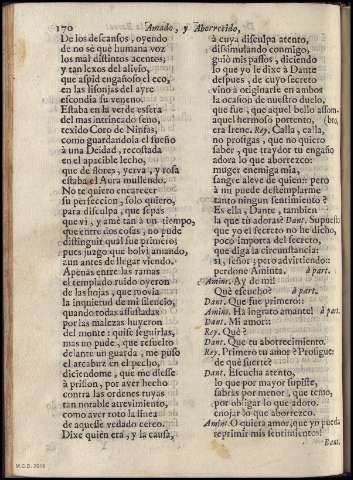 170 Amado, y Aborrecido,
De los descansos, oyendo
de no sè què humana voz
los mal distintos acentos;
y tan lexos del alivio,
que aspid engañoso el eco,
en las lisonjas del ayre
escondia su veneno.
Estaba en la verde esfera
del mas intrincado seno,
texido Coro de Ninfas,
como guardandola el sueño
à una Deidad, recostada
en el apacible lecho,
que de flores, yerva, y rosa
estaba el Aura mullendo.
No te quiero encarecer
su perfeccion, solo quiero,
para disculpa, que sepas
que vi, y amè tan à un tiempo,
que entre dos cosas, no pude
distinguir qual fue primero;
pues juzgo que bolvì amando,
aun antes de llegar viendo.
Apenas entre las ramas
el templado ruido oyeron
de las hojas, que movia
la inquietud de mi silencio,
quando todas assustadas
por las malezas huyeron
del monte: quise seguirlas,
mas no pude, que resuelto
delante un guarda, me puso
el arcabuz en el pecho,
diciendome, que me diesse
à prision, por aver hecho
contra las ordenes tuyas
tan notable atrevimiento,
como aver roto la linea
de aquesse vedado cerco.
Dixe quièn era, y la causa,
à cuya disculpa atento,
dissimulando conmigo,
guiò mis passos, diciendo
lo que yo le dixe à Dante
despues, de cuyo secreto
vino à originarse en ambos
la ocasion de nuestro duelo,
que fue, que aquel bello assom-
aquel hermoso portento, (bro,
era Irene. Rey. Calla, calla,
no prosigas, que no quiero
saber, que traydor tu engaño
adora lo que aborrezco:
muger enemiga mia,
sangre aleve de quien: pero
à mi puede destemplarme
tanto ningun sentimiento?
Es ella, Dante, tambien
la que tù adoras? Dant. Supuesto
que yo el secreto no he dicho,
poco importa del secreto,
que diga la circunstancia:
si, señor; pero advirtiendo::
perdone Aminta. à part.
Amint. Ay de mì!
Què escucho? à part.
Dant. Que fue primero::
Amint. Ha ingrato amante! à part.
Dant. Mi amor::
Rey. Què?
Dant. Que tu aborrecimiento.
Rey. Primero tu amor? Prosigue:
de què suerte?
Dant. Escucha atento,
lo que por mayor supiste,
sabràs por menor, que temo,
por obligar lo que adoro,
enojar lo que aborrezco.
Amint. O quiera amor, que yo pueda
reprimir mis sentimientos!
Dant.
M.C.D. 2018